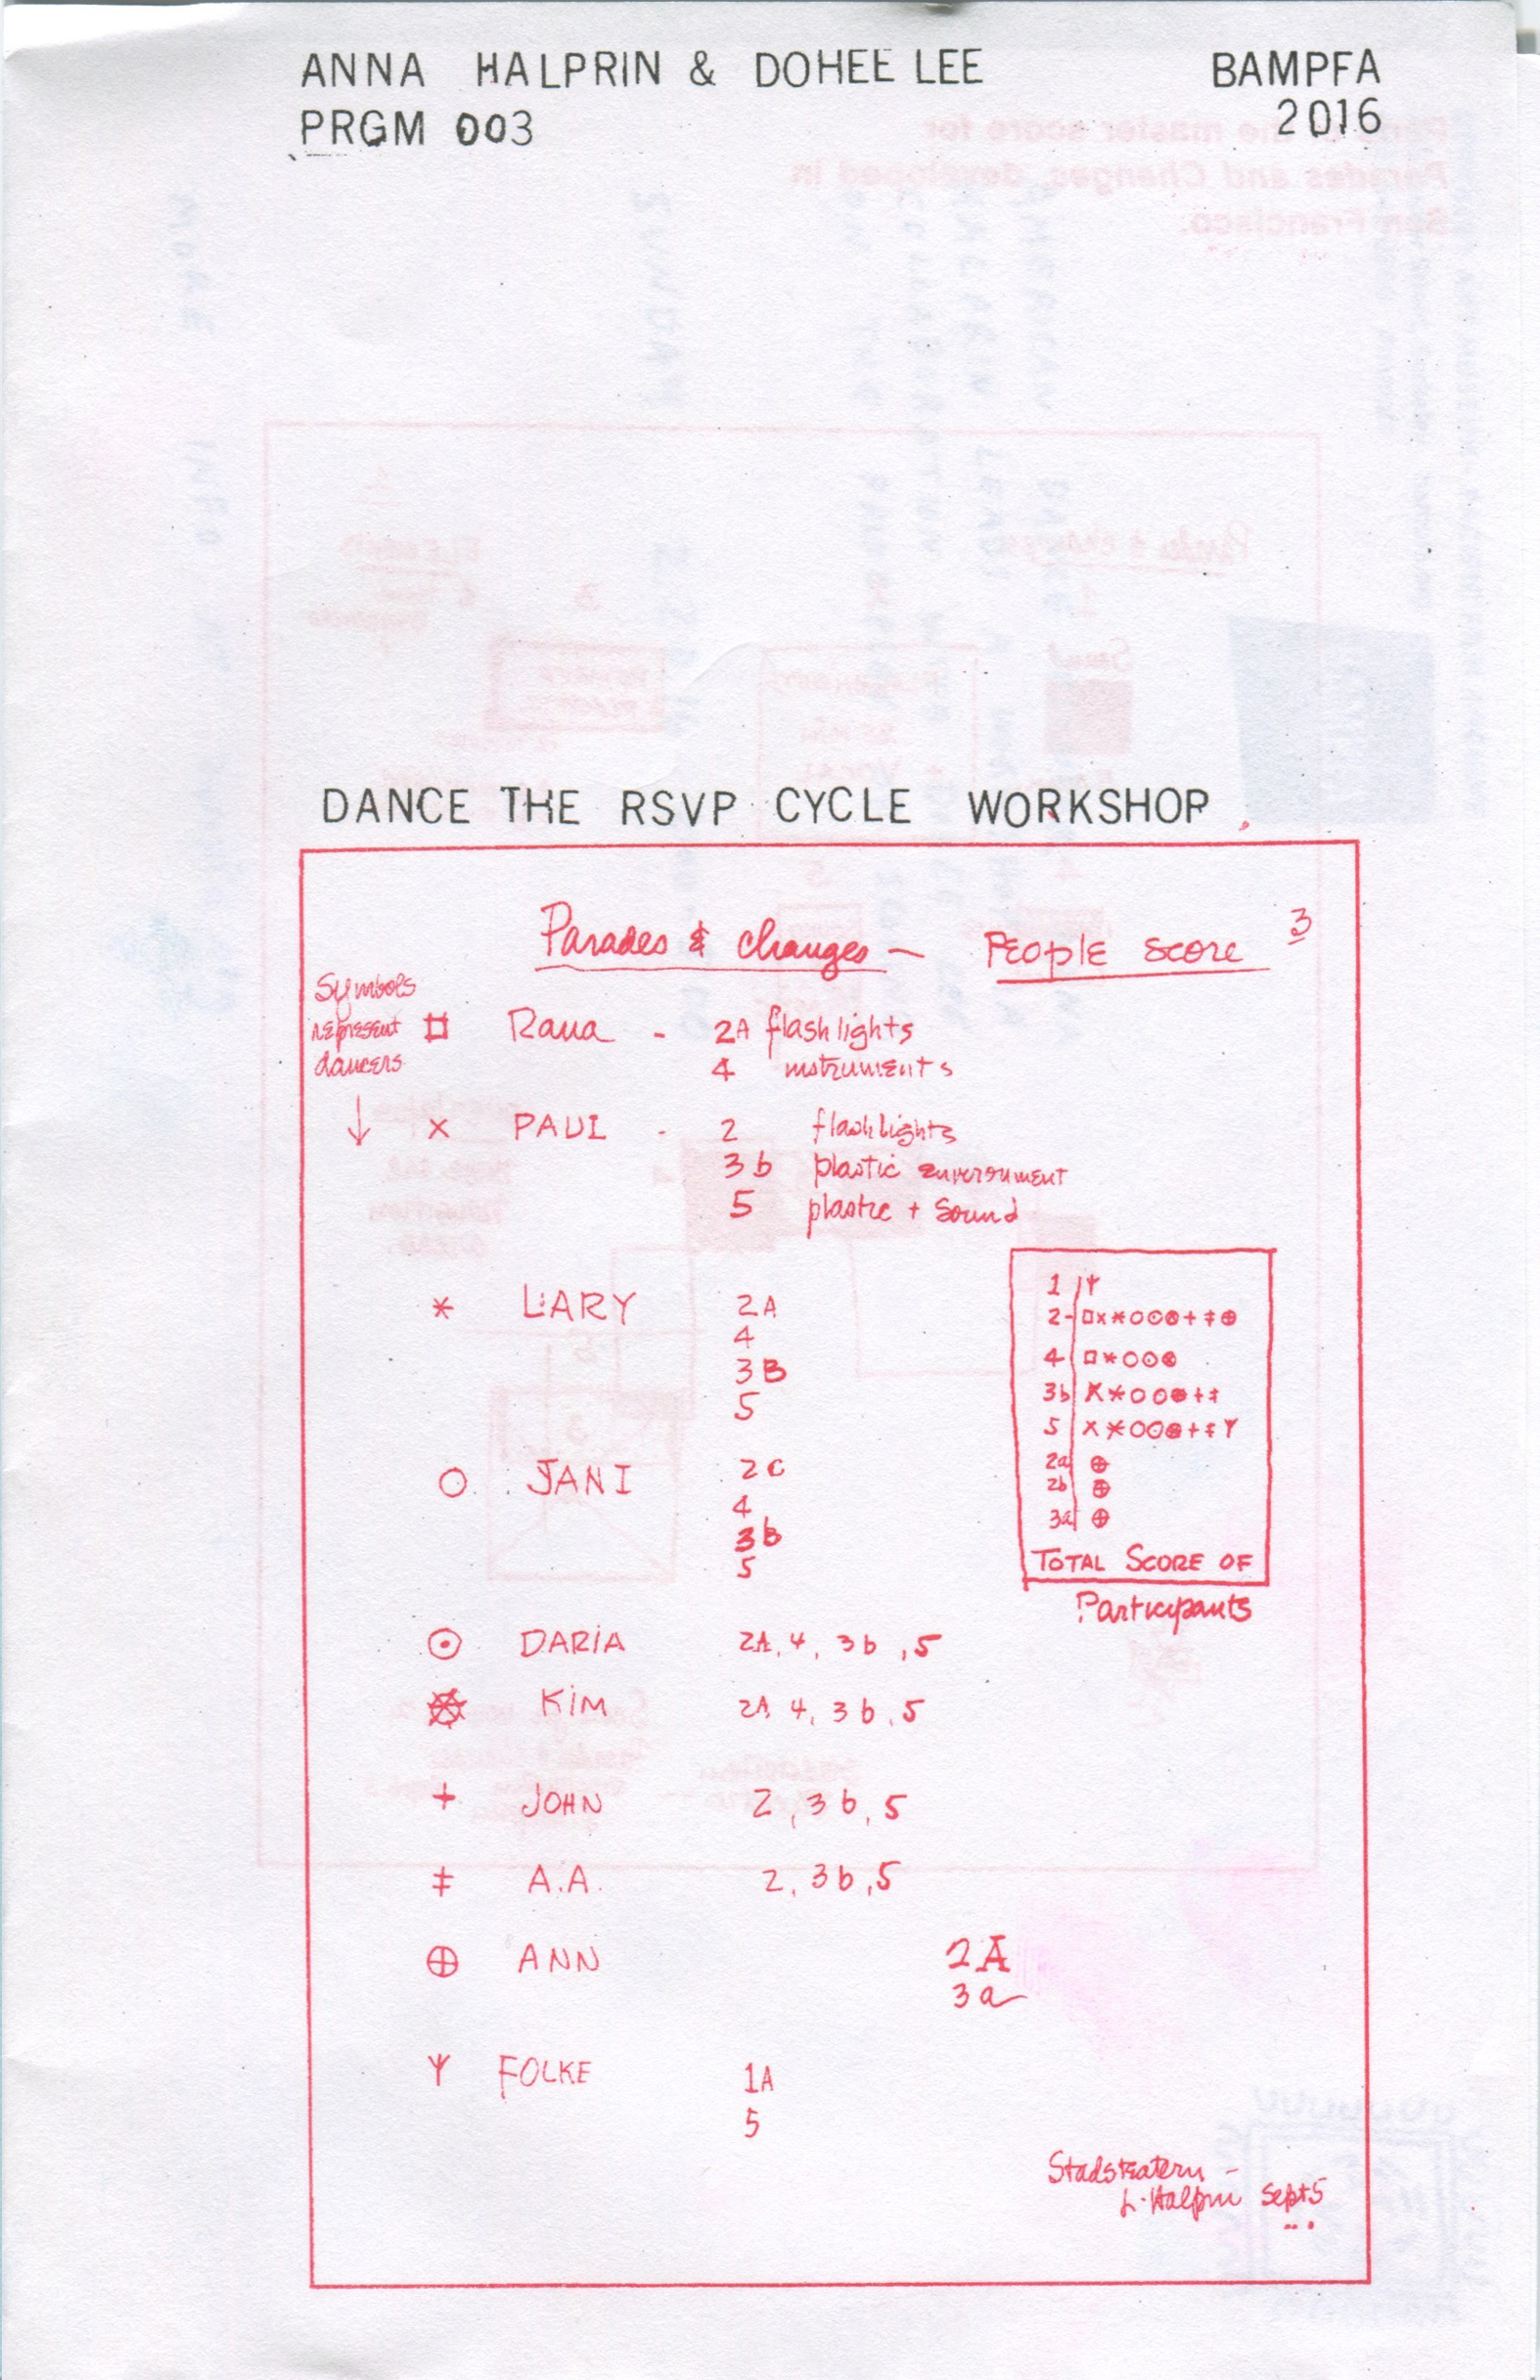 ANNA HALPRIN & DOHEE LEE BAMPFA
PRGM 003 2016
DANCE THE RSVP CYCLE WORKSHOP
Parades & changes — PEOPLE SCORE 3
Symbols
represent
dancers
↓
Rana - 2A flashlights
4 instruments
x PAUL - 2 flashlights
3b plastic environment
5 plastic + Sound
* LARY 2A
4
3B
5
○ JANI 2C
4
3b
5
⊙ DARIA 2A, 4, 3b, 5
KIM 2A 4, 3b, 5
+ JOHN 2, 3b, 5
‡ A.A. 2, 3b, 5
⊕ ANN 2A
3a
Ψ FOLKE 1A
5
1
2
4
3b
5
2a ⊕
2b ⊕
3a ⊕
TOTAL SCORE OF
Participants
Stadsteatern -
L. Halprin Sept 5